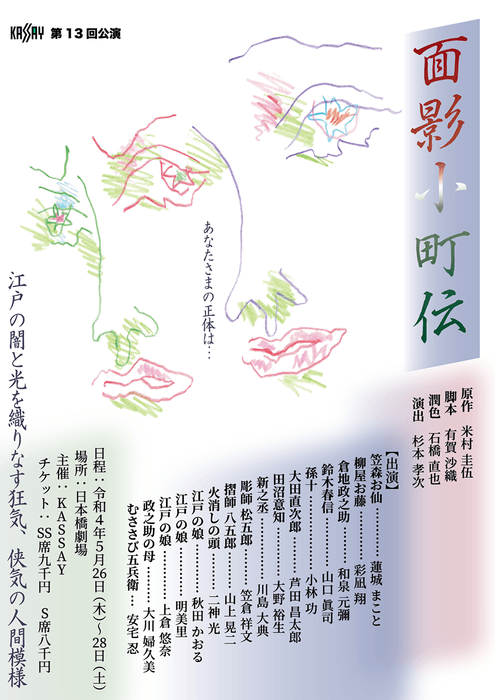 KASSAY 第13回公演
面影小町伝
原作 米村 圭伍
脚本 有賀 沙織
潤色 石橋 直也
演出 杉本 孝次
あなたさまの正体は…
【出演】
笠森お仙………… 蓮城 まこと
柳屋お藤………… 彩凪 翔
倉地政之助……… 和泉 元彌
鈴木春信………… 山口 眞司
孫十……………… 小林 功
大田直次郎……… 芦田 昌太郎
田沼意知………… 大野 裕生
新之丞…………… 川島 大典
彫師 松五郎…… 笠倉 祥文
摺師 八五郎…… 山上 晃二
火消しの頭……… 二神 光
江戸の娘………… 秋田 かおる
江戸の娘………… 明美里
江戸の娘………… 上倉 悠奈
政之助の母……… 大川 婦久美
むささび五兵衛… 安宅 忍
日程：令和4年5月26日（木）〜28日（土）
場所：日本橋劇場
主催：KASSAY
チケット：SS席九千円 S席八千円
江戸の闇と光を織りなす狂気、侠気の人間模様